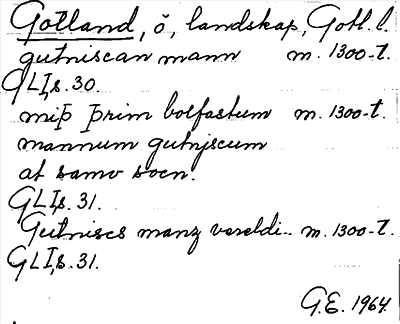 Gotland, ö, landskap, Gotl. l.
gutniscan mann m. 1300-t.
GLI, s. 30.
miþ þrim bolfastum m. 1300-t.
mannum gutniscum
at samo socn.
GLI, s. 31.
Gutniscs manz vereldi.. m. 1300-t.
GLI, s. 31.
G.E. 1964.